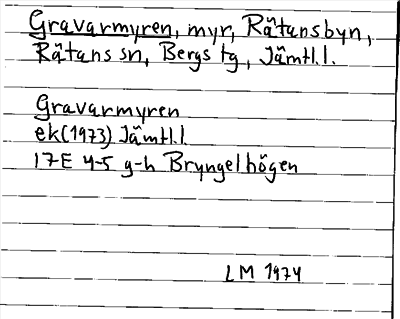 Gravarmyren, myr, Rätansbyn,
Rätans sn, Bergs tg, Jämtl.l.
Gravarmyren
ek(1973) Jämtl.l
17E 4-5 g-h Bryngelhögen
LM 1974